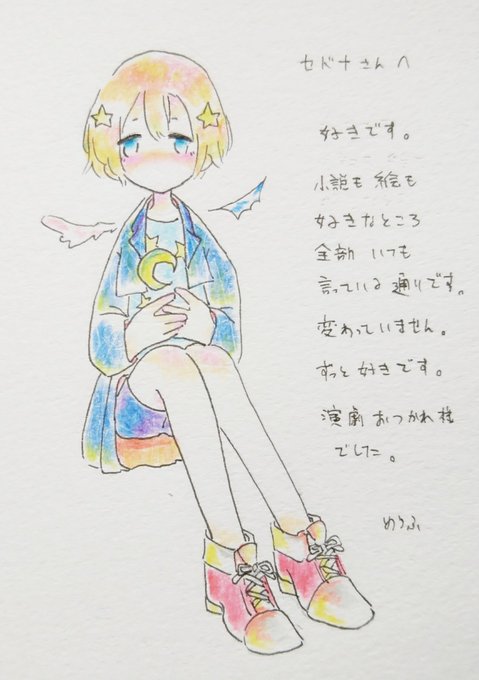 セドナさんへ
好きです。
小説も絵も
好きなところ
全部 いつも
言っている通りです。
変わっていません。
ずっと好きです。
演劇おつかれ様
でした。
めろふ